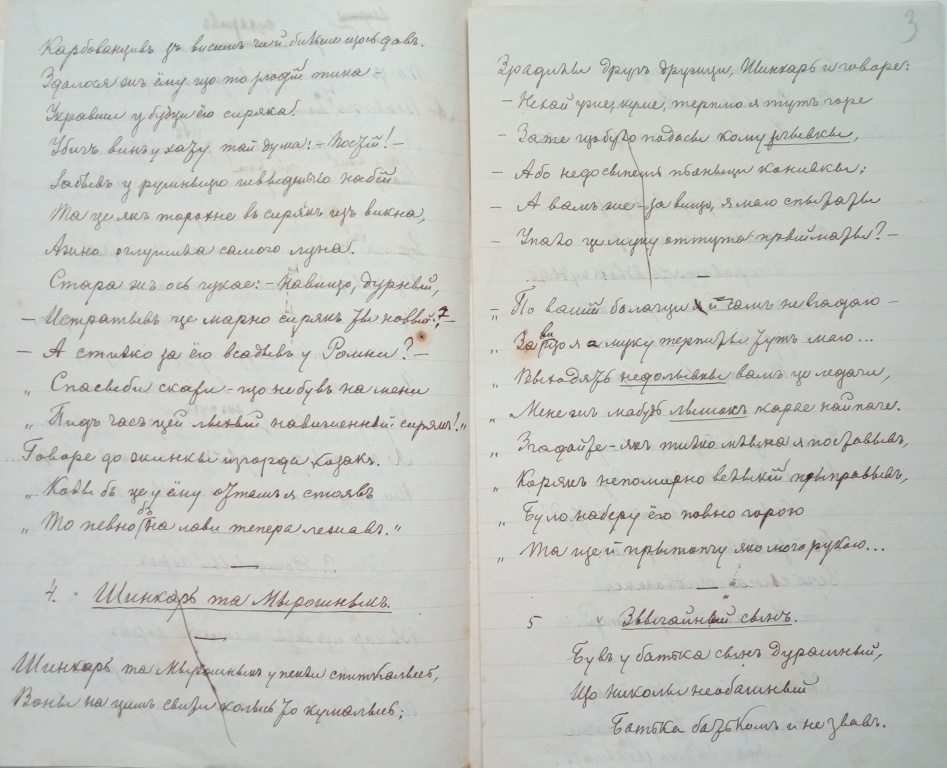 Карбованцивъ зъ висимъ чи й билыне щось давъ.
Здалося жъ ёму що то злодій тика
Укравши у будци ёго сиряка.
Убигъ винъ у хату тай дума: – Постій! –
Забывъ у рушныцю
Та це якъ торохне въ сирякъ изъ викна,
Ажно оглушила самого луна.
Стара жъ ось гукае: – Навищо, дурный,
– Истратывъ це марно сирякъ ты новый? –
– А стилко за ёго всадывъ у Ромни? –
„ Спасыби скажы – що не бувъ на мени
„ Пидъ часъ цей лыхый нависженный сирякъ!"
Говоре до жинкы изгорда козакъ.
„ Колы бъ це у ёму отамъ я стоявъ
„ То певно бъ на лави тепера лежавъ."
4. Шинкарь та Мырошныкъ.
Шинкарь та Мырошныкъ у пекли спиткалысь,
Воны на цимъ свити колысь то кумалысь;
3
Зрадилы другъ дружци, Шинкарь и говоре:
– Нехай уже, куме, терплю я тутъ горе
– За те що було подасы кому
– Або недосыпеш пьяныци
– А вамъ же – за вищо, я маю спытаты
– Упало це муку оттутъ прыйматы? –
„ По вашій балачци й самъ невгадаю –
„ За вищо я муку терпиты тутъ маю...
„ Выходять недолывкы вамъ це ледачи,
„ Мене жъ мабуть лышокъ карае найпаче.
„ Згадайте – якъ тилко млына я поставывъ,
„ Корякъ непомирно велыкый прыправывъ,
„ Було наберу ёго повно горою
„ Та ще й прытопчу яко мога рукою...
5 Звычайный сынъ.
Бувъ у батька сынъ дурашный,
Що николы необашный
Батька батькомъ и не звавъ.